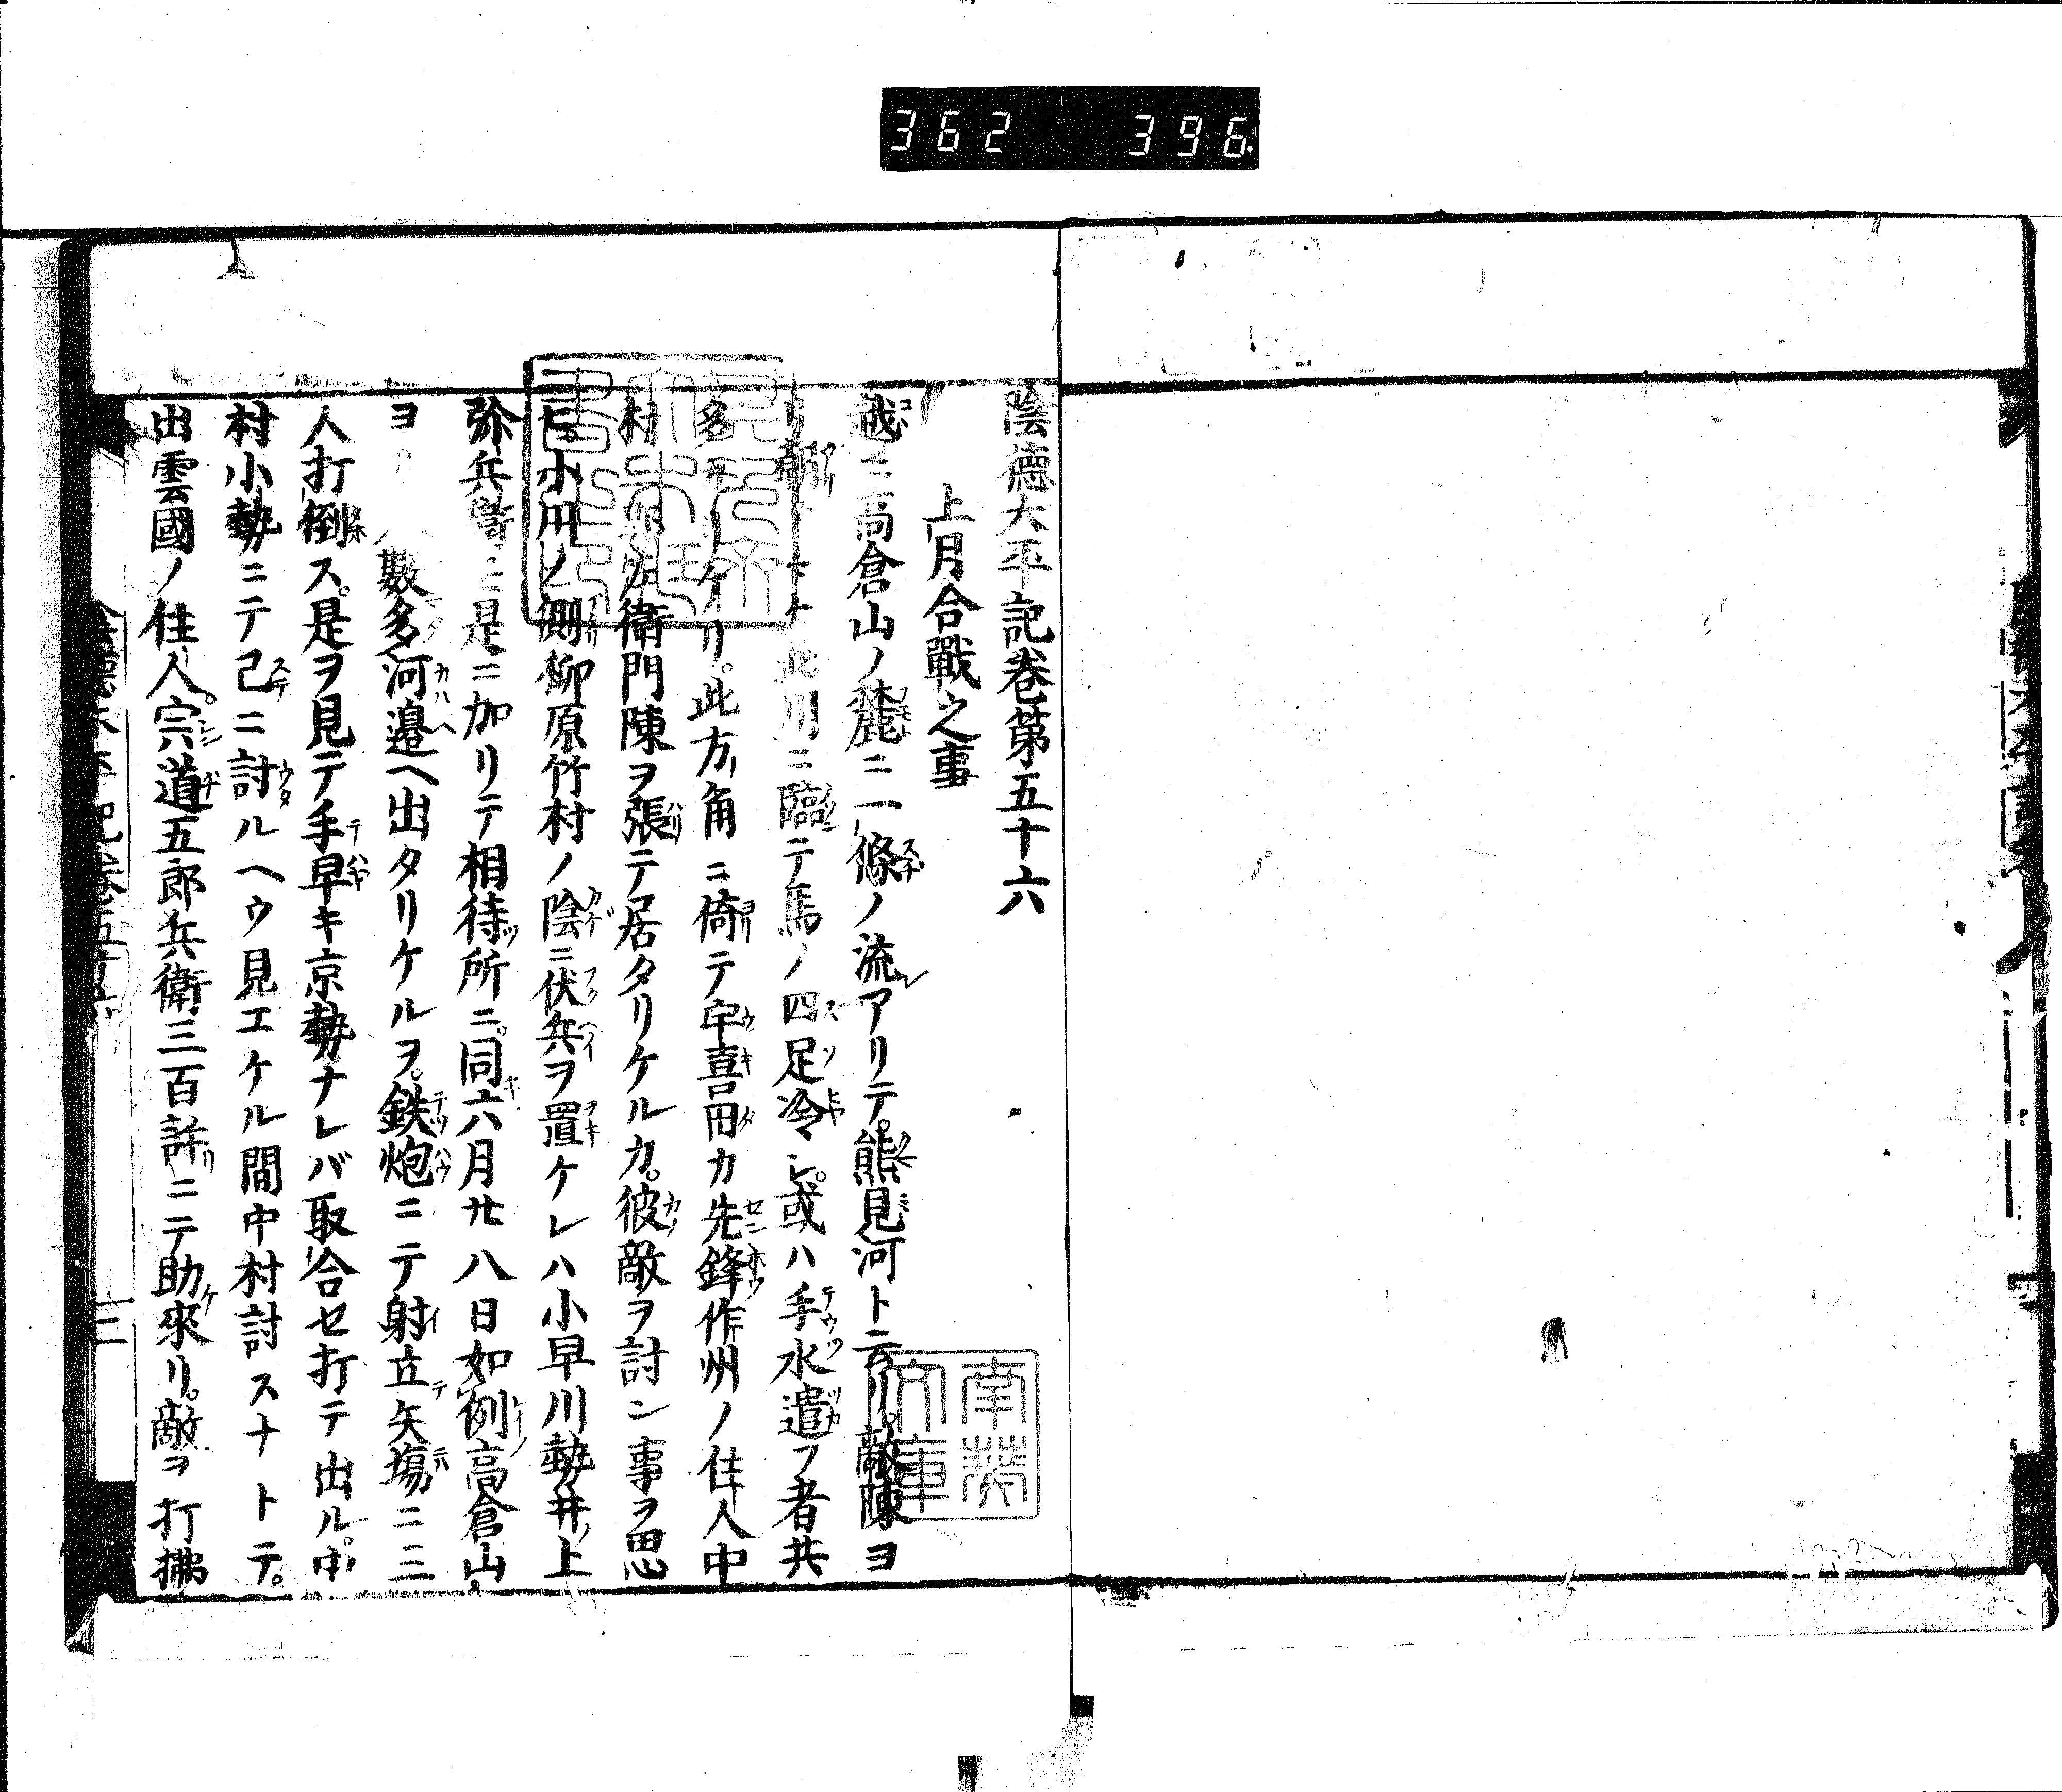 362 396
陰德太平記卷第五十六
上月合戰之事
茲ニ高倉山ノ麓ニ一條ノ流アリテ。熊見河ト云リ。敵陳ヨ
此川ニ臨テ馬ノ四足冷シ。或ハ手水遣フ者共
多カリケリ。此方角ニ倚テ宇喜田カ先鋒作州ノ住人中
村 左衛門陳ヲ張テ居タリケルカ。彼敵ヲ討ン事ヲ思
ヒ。小川ノ側柳原竹村ノ陰ニ伏兵ヲ置ケレハ小早川勢井上
弥兵衛 是ニ加リテ相待所ニ。同六月廿八日如例高倉山
ヨリ 數多河邉ヘ出タリケルヲ。鉄炮ニテ射立矢塲ニ二三
人打倒ス。是ヲ見テ手早キ京勢ナレバ取合セ打テ出ル。中
村小勢ニテ已ニ討ルヘウ見エケル間中村討スナトテ。
出雲國ノ住人。宍道五郎兵衛三百許ニテ助來リ。敵ヲ打拂